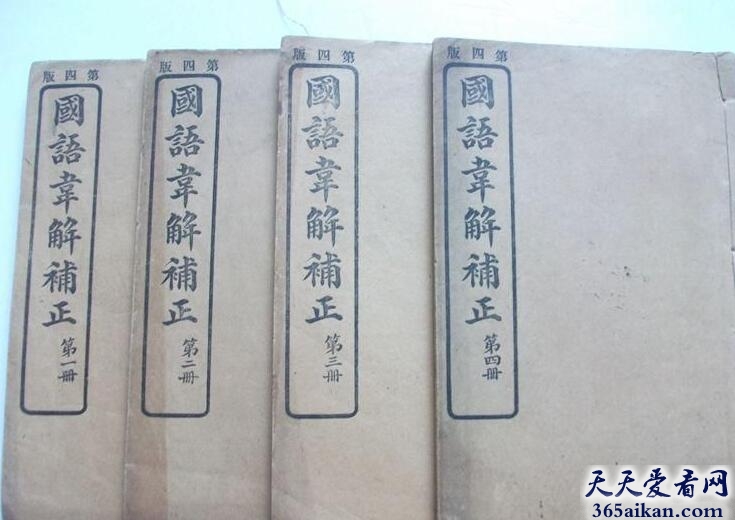 第四版
國語韋解補正
第一册
第四版
國語韋解補正
第二册
第四版
國語韋解補正
第三册
第四版
國語韋解補正
第四册
天天爱看网
365aikan.com